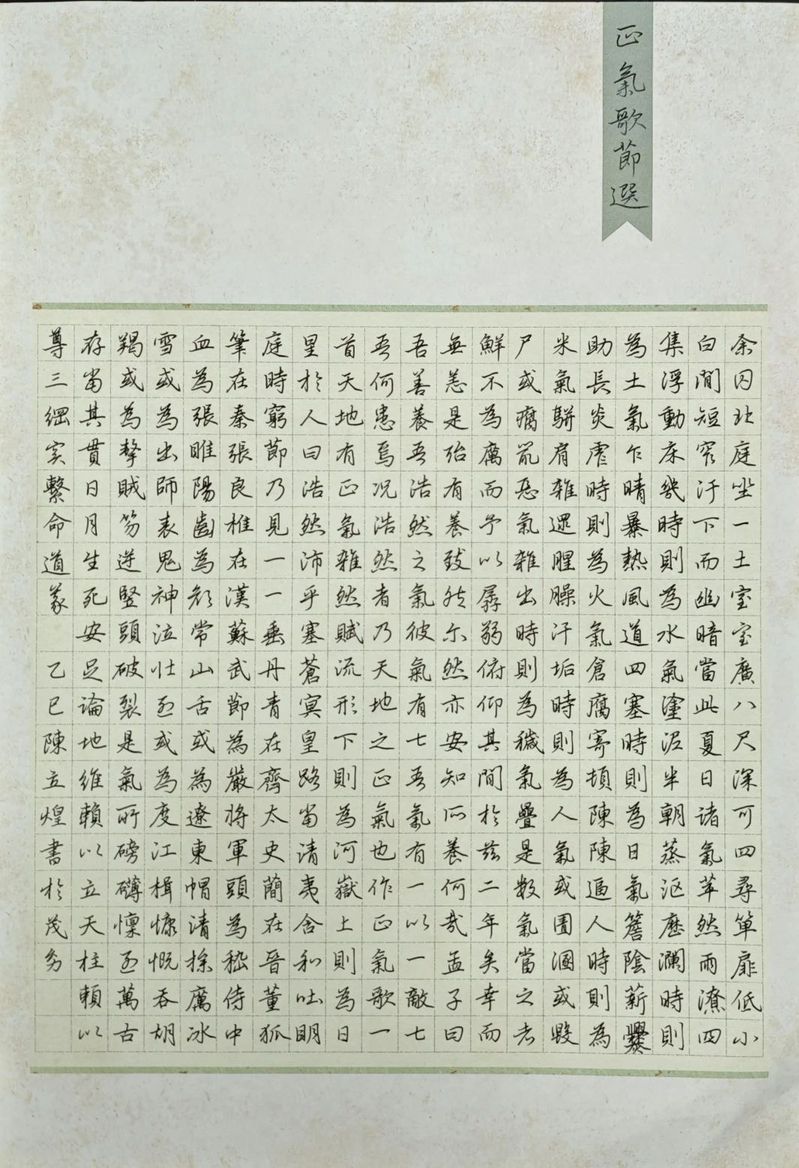 正氣歌節選
余囚北庭坐一土室室廣八尺深可四尋單扉低小
白間短窄汙下而幽暗當此夏日諸氣萃然雨潦四
集浮動床几時則為水氣塗泥半朝蒸漚歷瀾時則
為土氣乍晴暴熱風道四塞時則為日氣簷陰薪爨
助長炎虐時則為火氣倉腐寄頓陳陳逼人時則為
米氣駢肩雜遝腥臊汗垢時則為人氣或圊溷或毀
尸或腐鼠惡氣雜出時則為穢氣疊是數氣當之者
鮮不為厲而予以孱弱俯仰其間於茲二年矣幸而
無恙是殆有養致然尔然亦安知所養何哉孟子曰
吾善養吾浩然之氣彼氣有七吾氣有一以一敵七
吾何患焉况浩然者乃天地之正氣也作正氣歌一
首天地有正氣雜然賦流形下則為河嶽上則為日
星於人曰浩然沛乎塞蒼冥皇路當清夷含和吐明
庭時窮節乃見一一垂丹青在齊太史簡在晉董狐
筆在秦張良椎在漢蘇武節為嚴將軍頭為嵇侍中
血為張睢陽齒為顏常山舌或為遼東帽清操厲冰
雪或為出師表鬼神泣壯烈或為度江楫慷慨吞胡
羯或為擊賊笏逆豎頭破裂是氣所磅礴懍烈萬古
存當其貫日月生死安足論地維賴以立天柱賴以
尊三綱实繫命道義 乙巳陳立煌書於茂名